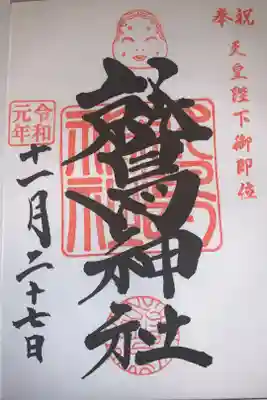 奉祝 天皇陛下御即位
鷲神社
令和
元年
十一月二十七日